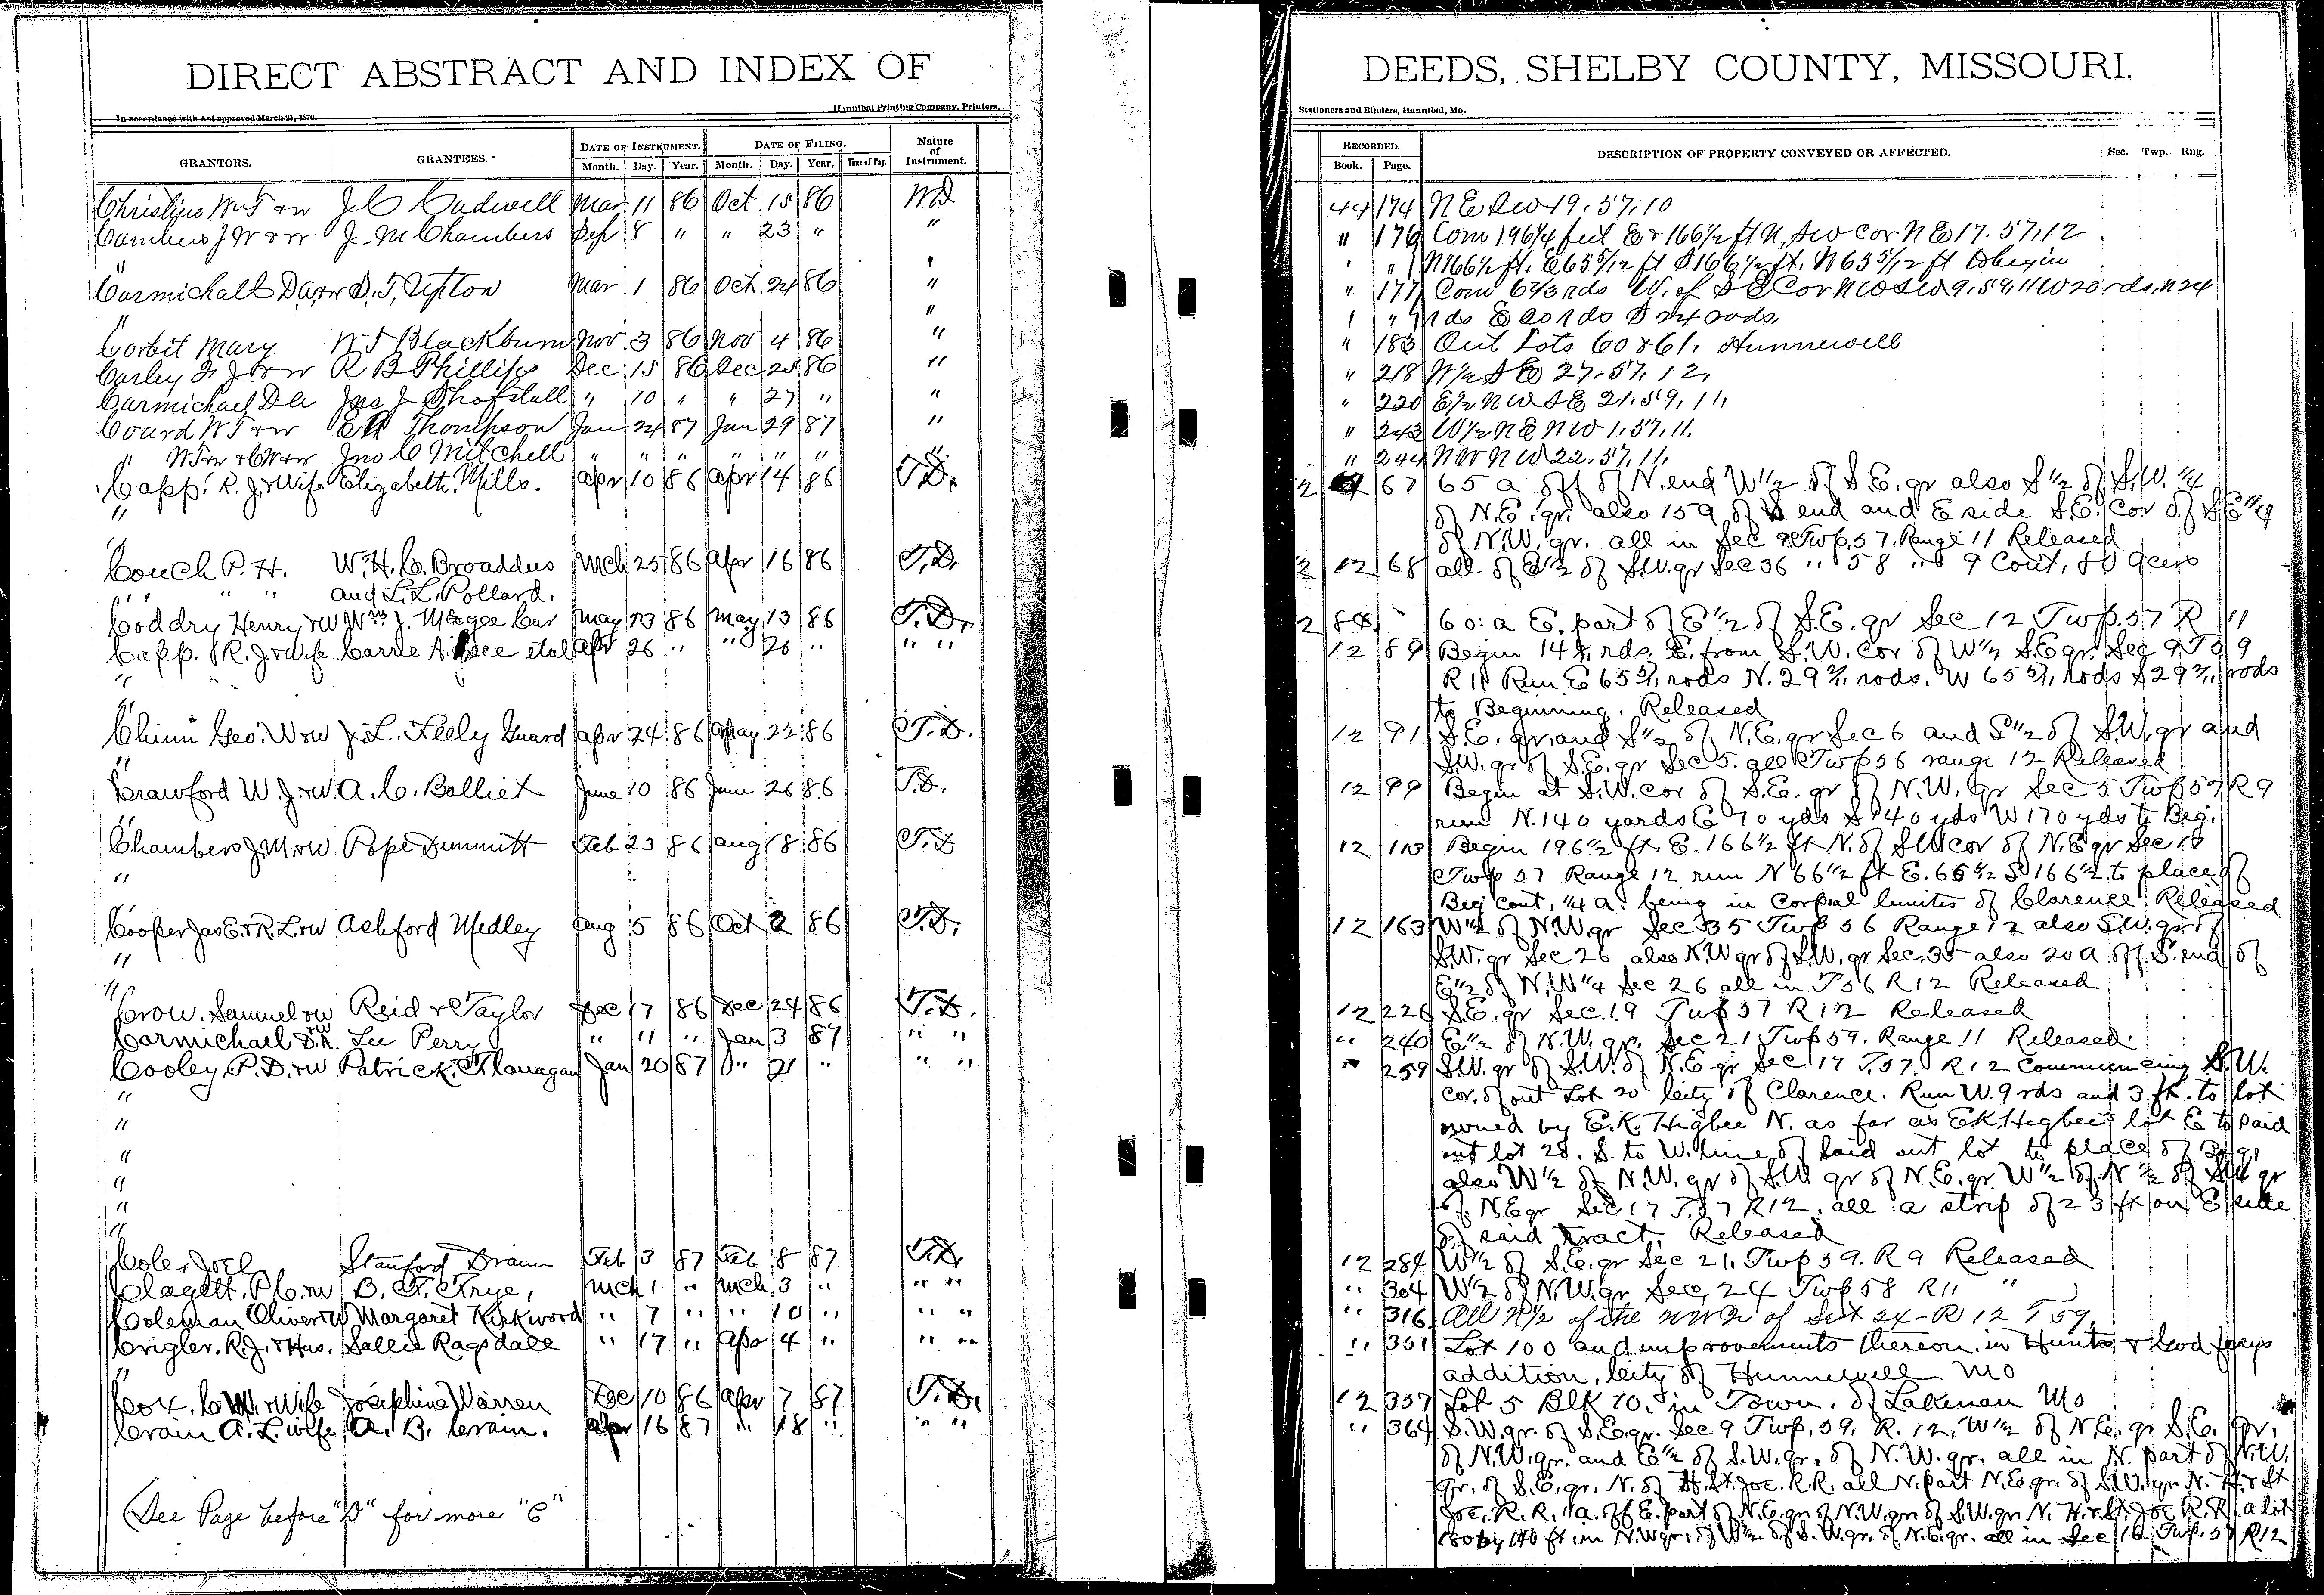 DIRECT ABSTRACT AND INDEX OF
In accordance with Act approved March 25, 1870.
Hannibal Printing Company, Printers,
GRANTORS. GRANTEES. DATE OF INSTRUMENT. DATE OF FILING. Nature of Instrument.
Month. Day. Year. Month. Day. Year. Time of Day.
Christine Wm F &w J C Cadwell Mar 11 86 Oct 15 86 WD
J W &w J. M Chambers Sep 8 " " 23 " "
" "
Carmichall D A &w S. T, Upton Mar 1 86 Oct. 24 86 "
" "
Corbit Mary W J Blackburn Nov 3 86 Nov 4 86 "
Corley F J &w R B Phillips Dec 15 86 Dec 25 86 "
Carmichael D A Jno J Shofstall " 10 " " 27 " "
Coard W T &w E Thompson Jan 24 87 Jan 29 87 "
" W T &w & C W &w Jno C Mitchell " " " " " " "
Capp. R. J. & Wife Elizabeth Mills. Apr 10 86 Apr 14 86 T.D.
"
"
Couch P. H. W. H. C. Broaddus Mch 25 86 Apr 16 86 T.D.
" " " and L. L. Pollard.
Coddry Henry &w Wm J. Magee Cur May 13 86 May 13 86 T.D.
Capp. R. J. & Wife Carrie A. ce etal Apr 26 " " 26 " " "
"
"
Chinn Geo. W &w J. L. Feely Guard Apr 24 86 May 22 86 T.D.
"
Crawford W. J. &w A. C. Balliet June 10 86 June 26 86 T.D.
"
Chambers J. M. &w Pope Dimmitt Feb 23 86 Aug 18 86 T.D
"
"
Cooper Jas E. & R. L. &w Ashford Medley Aug 5 86 Oct 2 86 T.D.
"
"
Crow. Samuel &w Reid & Taylor Dec 17 86 Dec 24 86 T.D.
Carmichael D. A. &w Lee Perry " 11 " Jan 3 87 " "
Cooley P. D. &w Patrick Flanagan Jan 20 87 " 21 " " "
"
"
"
"
"
"
Cole Joel Stanford Drain Feb 3 87 Feb 8 87 T.D.
Clagett. P. C. &w B. F. Frye, Mch 1 " Mch 3 " " "
Coleman Oliver &w Margaret Kirkwood " 7 " " 10 " " "
Crigler. R. J. & Hus. Sallie Ragsdale " 17 " Apr 4 " " "
"
Cox, C W. & Wife Josephine Warren Dec 10 86 Apr 7 87 T.D.
Crain A. L. wife A. B. Crain. Apr 16 87 " 18 " " "
(See Page before "D" for more "C"
DEEDS, SHELBY COUNTY, MISSOURI.
Stationers and Binders, Hannibal, Mo.
RECORDED. DESCRIPTION OF PROPERTY CONVEYED OR AFFECTED. Sec. Twp. Rng.
Book. Page.
44 174 N E SW 19. 57. 10
" 176 Com 196 1/4 feet E & 166 1/2 ft N, SW cor NE 17. 57. 12
" " N 166 1/2 ft. E 65 5/12 ft S 166 1/2 ft. N 65 5/12 ft to begin
" 177 Com 6 2/3 rds W. of SE Cor NW SW 9. 59. 11 W 20 rds. N 24
" " rds E 20 rds S 24 rods,
" 183 Out Lots 60 & 61, Hunnewell
" 218 W 1/2 S E 27. 57. 12,
" 220 E 1/2 N W S E 21. 59, 11,
" 243 W 1/2 N E N W 1. 57, 11.
" 244 N W N W 22. 57. 11.
2 67 65 a off of N. end W 1/2 of S. E. qr also S 1/2 of S. W. 1/4
of N. E. qr. also 15 a of S end and E side S. E. Cor of S E 1/4
of N. W. qr. all in Sec 9 Twp 57. Range 11 Released
2 12 68 all of E 1/2 of S. W. qr Sec 36 " 58 " 9 Cont, 80 acers
2 88 60. a E. part of E 1/2 of S. E. qr Sec 12 Twp. 57 R 11
12 89 Begin rds. E. from S. W. Cor of W 1/2 S. E qr. Sec 9 T
R 11 Run E rods N. rods. W rods S rods
to Beginning. Released
12 91 S. E. qr and S 1/2 of N. E. qr Sec 6 and S 1/2 of S. W. qr and
S. W. qr of S. E. qr Sec 5. all Twp 56 range 12 Released
12 99 Begin at S. W. cor of S. E. qr of N. W. qr Sec 5 Twp 57 R 9
run N. 140 yards E 70 yds S 140 yds W 170 yds to Beg.
12 113 Begin 196 1/2 ft. E. 166 1/2 ft N. of SW cor of N. E qr Sec 17
Twp 57 Range 12 run N 66 1/2 ft E. 65 1/2 S 166 1/2 to place of
Beg cont, 1/4 a. being in Corpral limits of Clarence Released
12 163 W 1/2 of N. W. qr Sec 35 Twp 56 Range 12 also S. W. qr of
S. W. qr Sec 26 also N. W qr of S. W. qr Sec. 35 also 20 a off S. end of
E 1/2 of N. W 1/4 Sec 26 all in T 56 R 12 Released
12 226 S. E. qr Sec. 19 Twp 57 R 12 Released
" 240 E 1/2 of N. W. qr. Sec 21 Twp 59. Range 11 Released.
" 259 S. W. qr of S. W. of N. E. qr Sec 17 T. 57. R 12 Commencing S. W.
cor. of out Lot 20 City of Clarence. Run W. 9 rds and 3 ft. to lot
owned by E. K. Higbee N. as far as E K. Higbee's lot E to said
out lot 20, S. to W. line of said out lot to place of Beg.
also W 1/2 of N. W. qr of S. W qr of N. E. qr. W 1/2 of N 1/2 of S W qr
of N. E qr Sec 17 T. 57 R 12. all a strip of 23 ft on E side
of said tract. Released
12 284 W 1/2 of S. E. qr Sec 21. Twp 59. R 9 Released
" 304 W 1/2 of N. W. qr Sec, 24 Twp 58 R 11 "
" 316 All N 1/2 of the NW of Sect 24 - R 12 T 59,
" 351 Lot 100 and improvements thereon. in Hunts & Godfreys
addition, City of Hunnewell Mo
12 357 Lot 5 Blk 10. in Town. of Lakenan Mo
" 364 S. W. qr. of S. E. qr. Sec 9 Twp. 59. R. 12, W 1/2 of N. E. qr S. E. qr.
of N. W. qr. and E 1/2 of S. W. qr. of N. W. qr. all in N. part of N. W.
qr. of S. E. qr. N. of H. St. Joe. R. R. all N. part N. E. qr. of S. W. qr N. H. & St
Joe. R. R. 11 a. off E. part of N. E. qr of N. W. qr. of S. W. qr N. H. & St. Joe R. R. a lot
by 140 ft. in N. W qr. of W 1/2 of S. W. qr. of N. E. qr. all in Sec 16. Twp. 57 R 12